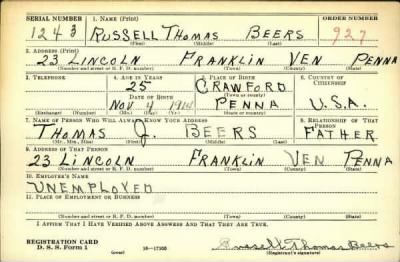 SERIAL NUMBER 1. NAME (Print) ORDER NUMBER
1243 RUSSELL THOMAS BEERS 927
(First) (Middle) (Last)
2. ADDRESS (Print)
23 LINCOLN FRANKLIN VEN PENNA
(Number and street or R. F. D. number) (Town) (County) (State)
3. TELEPHONE 4. AGE IN YEARS 5. PLACE OF BIRTH 6. COUNTRY OF CITIZENSHIP
25 CRAWFORD
(Town or county)
DATE OF BIRTH
NOV 4 1914 PENNA U.S.A.
(Exchange) (Number) (Mo.) (Day) (Yr.) (State or country)
7. NAME OF PERSON WHO WILL ALWAYS KNOW YOUR ADDRESS 8. RELATIONSHIP OF THAT PERSON
THOMAS J. BEERS FATHER
(Mr., Mrs., Miss) (First) (Middle) (Last)
9. ADDRESS OF THAT PERSON
23 LINCOLN FRANKLIN VEN PENNA
(Number and street or R. F. D. number) (Town) (County) (State)
10. EMPLOYER'S NAME
UNEMPLOYED
11. PLACE OF EMPLOYMENT OR BUSINESS
(Number and street or R. F. D. number) (Town) (County) (State)
I AFFIRM THAT I HAVE VERIFIED ABOVE ANSWERS AND THAT THEY ARE TRUE.
REGISTRATION CARD
D. S. S. Form 1 (over) 16—17500 Russell Thomas Beers
(Registrant's signature)